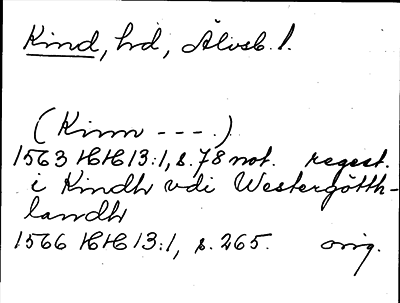 Kind, hd, Älvsb. l.
(Kinn - - - .)
1563 HH 13:1, s. 78 not. regest.
i Kindh vdi Westergötth-
landh
1566 HH 13:1, s. 265. orig.